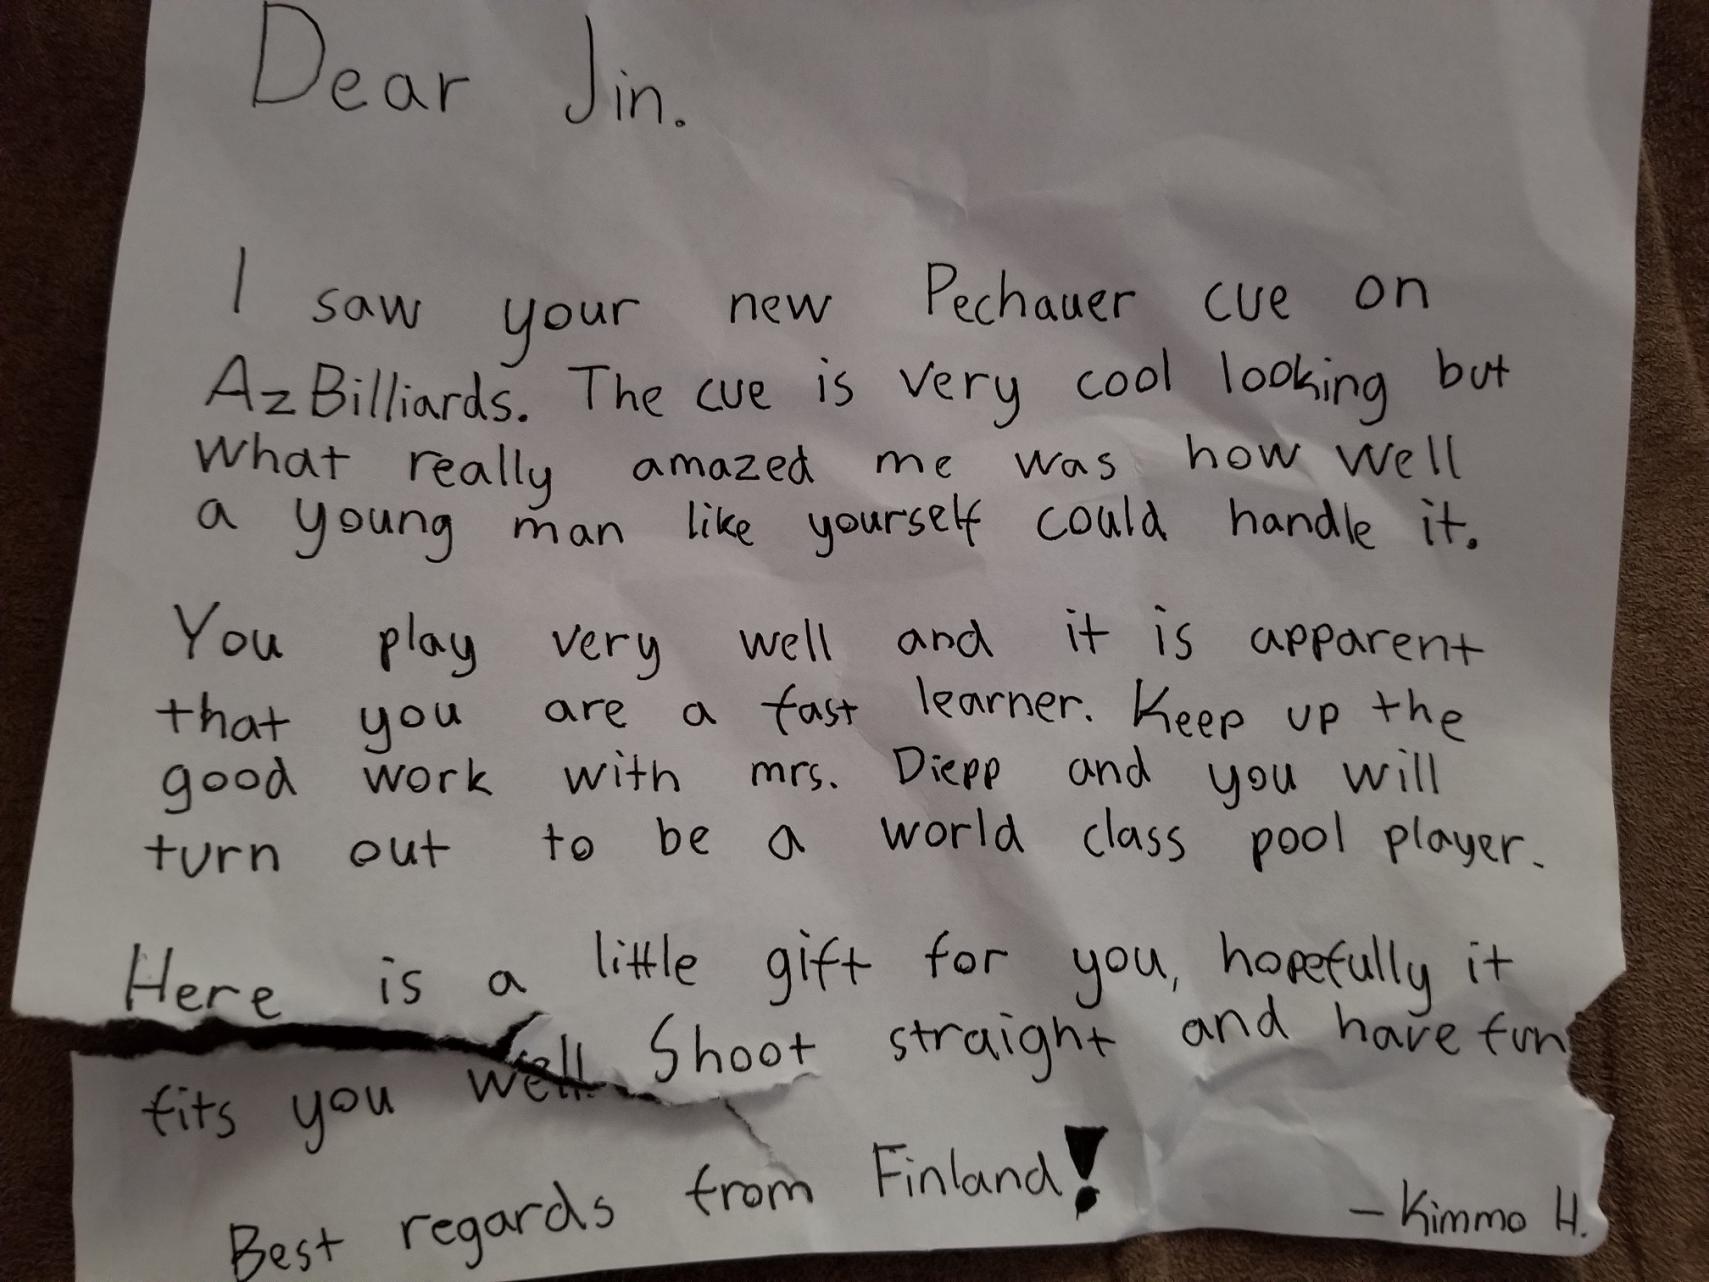 Dear Jin.
I saw your new Pechauer cue on
AzBilliards. The cue is very cool looking but
what really amazed me was how well
a young man like yourself could handle it.
You play very well and it is apparent
that you are a fast learner. Keep up the
good work with mrs. Diepp and you will
turn out to be a world class pool player.
Here is a little gift for you, hopefully it
fits you well. Shoot straight and have fun
Best regards from Finland!
- Kimmo H.